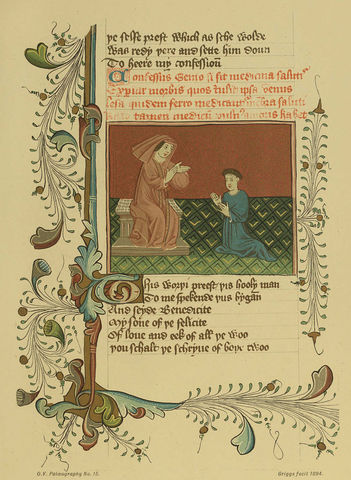 þe selfe prest which as sche wolde
Was redy þere and sette him doun
To heere my confessioun
Confessus Genio si sit medicina salutis
Expiar morbis quos tulit ipsa venus
lesa quidem ferro medicantur membra saluti
Raro tamen medicum vulnus amoris habet
This worþi preest þis hooly man
To me spekende þus bygan
And seyde Benedicite
My sone of þe felicite
Of loue and eek of all þe woo
þou schalt þe schryue of boþe twoo
G.V. Palæography No. 15.
Griggs fecit 1894.